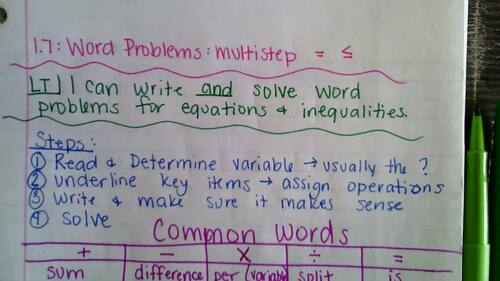 1.7: Word Problems: multistep = ≤
LT I can write and solve word
problems for equations & inequalities.
Steps:
① Read & Determine variable → usually the ?
② underline key items → assign operations
③ Write & make sure it makes sense
④ Solve
Common Words
+ − × ÷ =
sum difference per (variable) split is